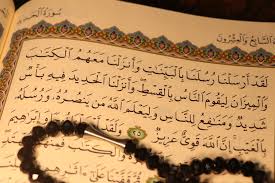 سُورَةُ الْحَدِيدِ
السَّابِعُ وَالْعِشْرُونَ
لَقَدْ أَرْسَلْنَا رُسُلَنَا بِالْبَيِّنَٰتِ وَأَنزَلْنَا مَعَهُمُ الْكِتَٰبَ
وَالْمِيزَانَ لِيَقُومَ النَّاسُ بِالْقِسْطِ وَأَنزَلْنَا الْحَدِيدَ فِيهِ بَأْسٌ
شَدِيدٌ وَمَنَٰفِعُ لِلنَّاسِ وَلِيَعْلَمَ اللَّهُ مَن يَنصُرُهُۥ وَرُسُلَهُۥ
بِالْغَيْبِ إِنَّ اللَّهَ قَوِيٌّ عَزِيزٌ ٢٥ وَلَقَدْ وَإِبْرَٰهِيمَ
وَالْكِتَٰبَ فَمِنْهُم